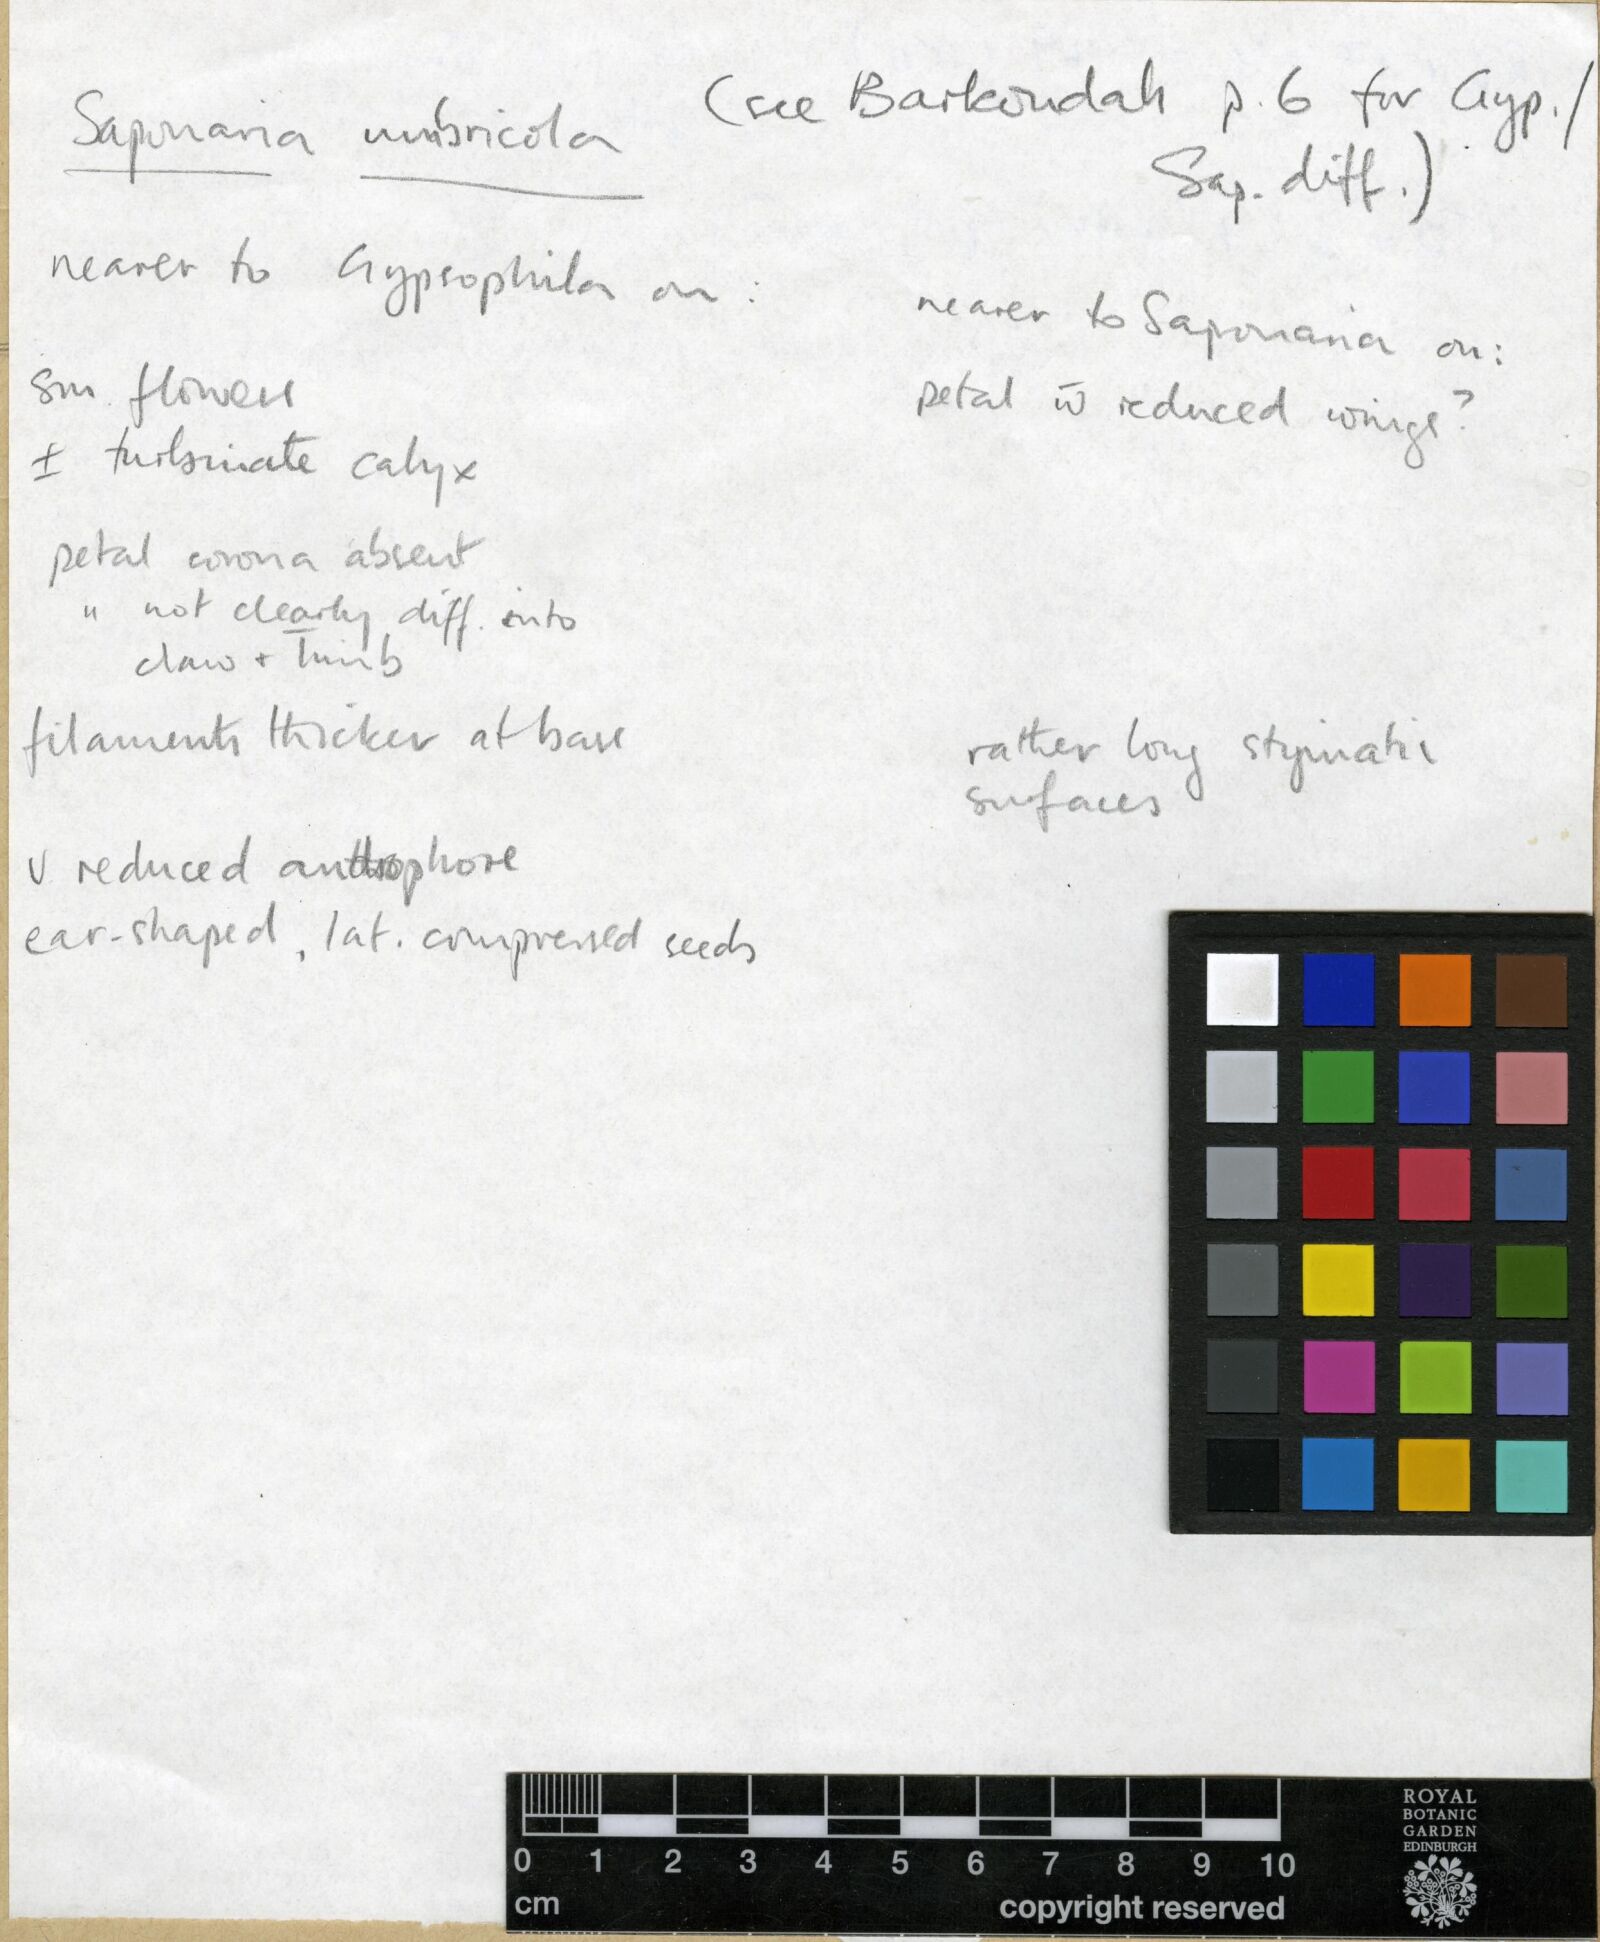 Saponaria umbricola
(see Barkoudah p.6 for Gyp./
Sap. diff.)
nearer to Gypsophila on:
sm. flowers
± turbinate calyx
petal corona absent
" not clearly diff. into
claw + limb
filaments thicker at base
v reduced anthophore
ear-shaped, lat. compressed seeds
nearer to Saponaria on:
petal w̄ reduced wings?
rather long stigmatic
surfaces
0 1 2 3 4 5 6 7 8 9 10
cm
copyright reserved
ROYAL
BOTANIC
GARDEN
EDINBURGH